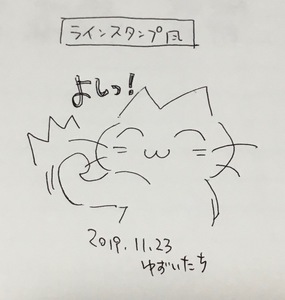 ラインスタンプ風
よしっ!
2019.11.23
ゆずいたち